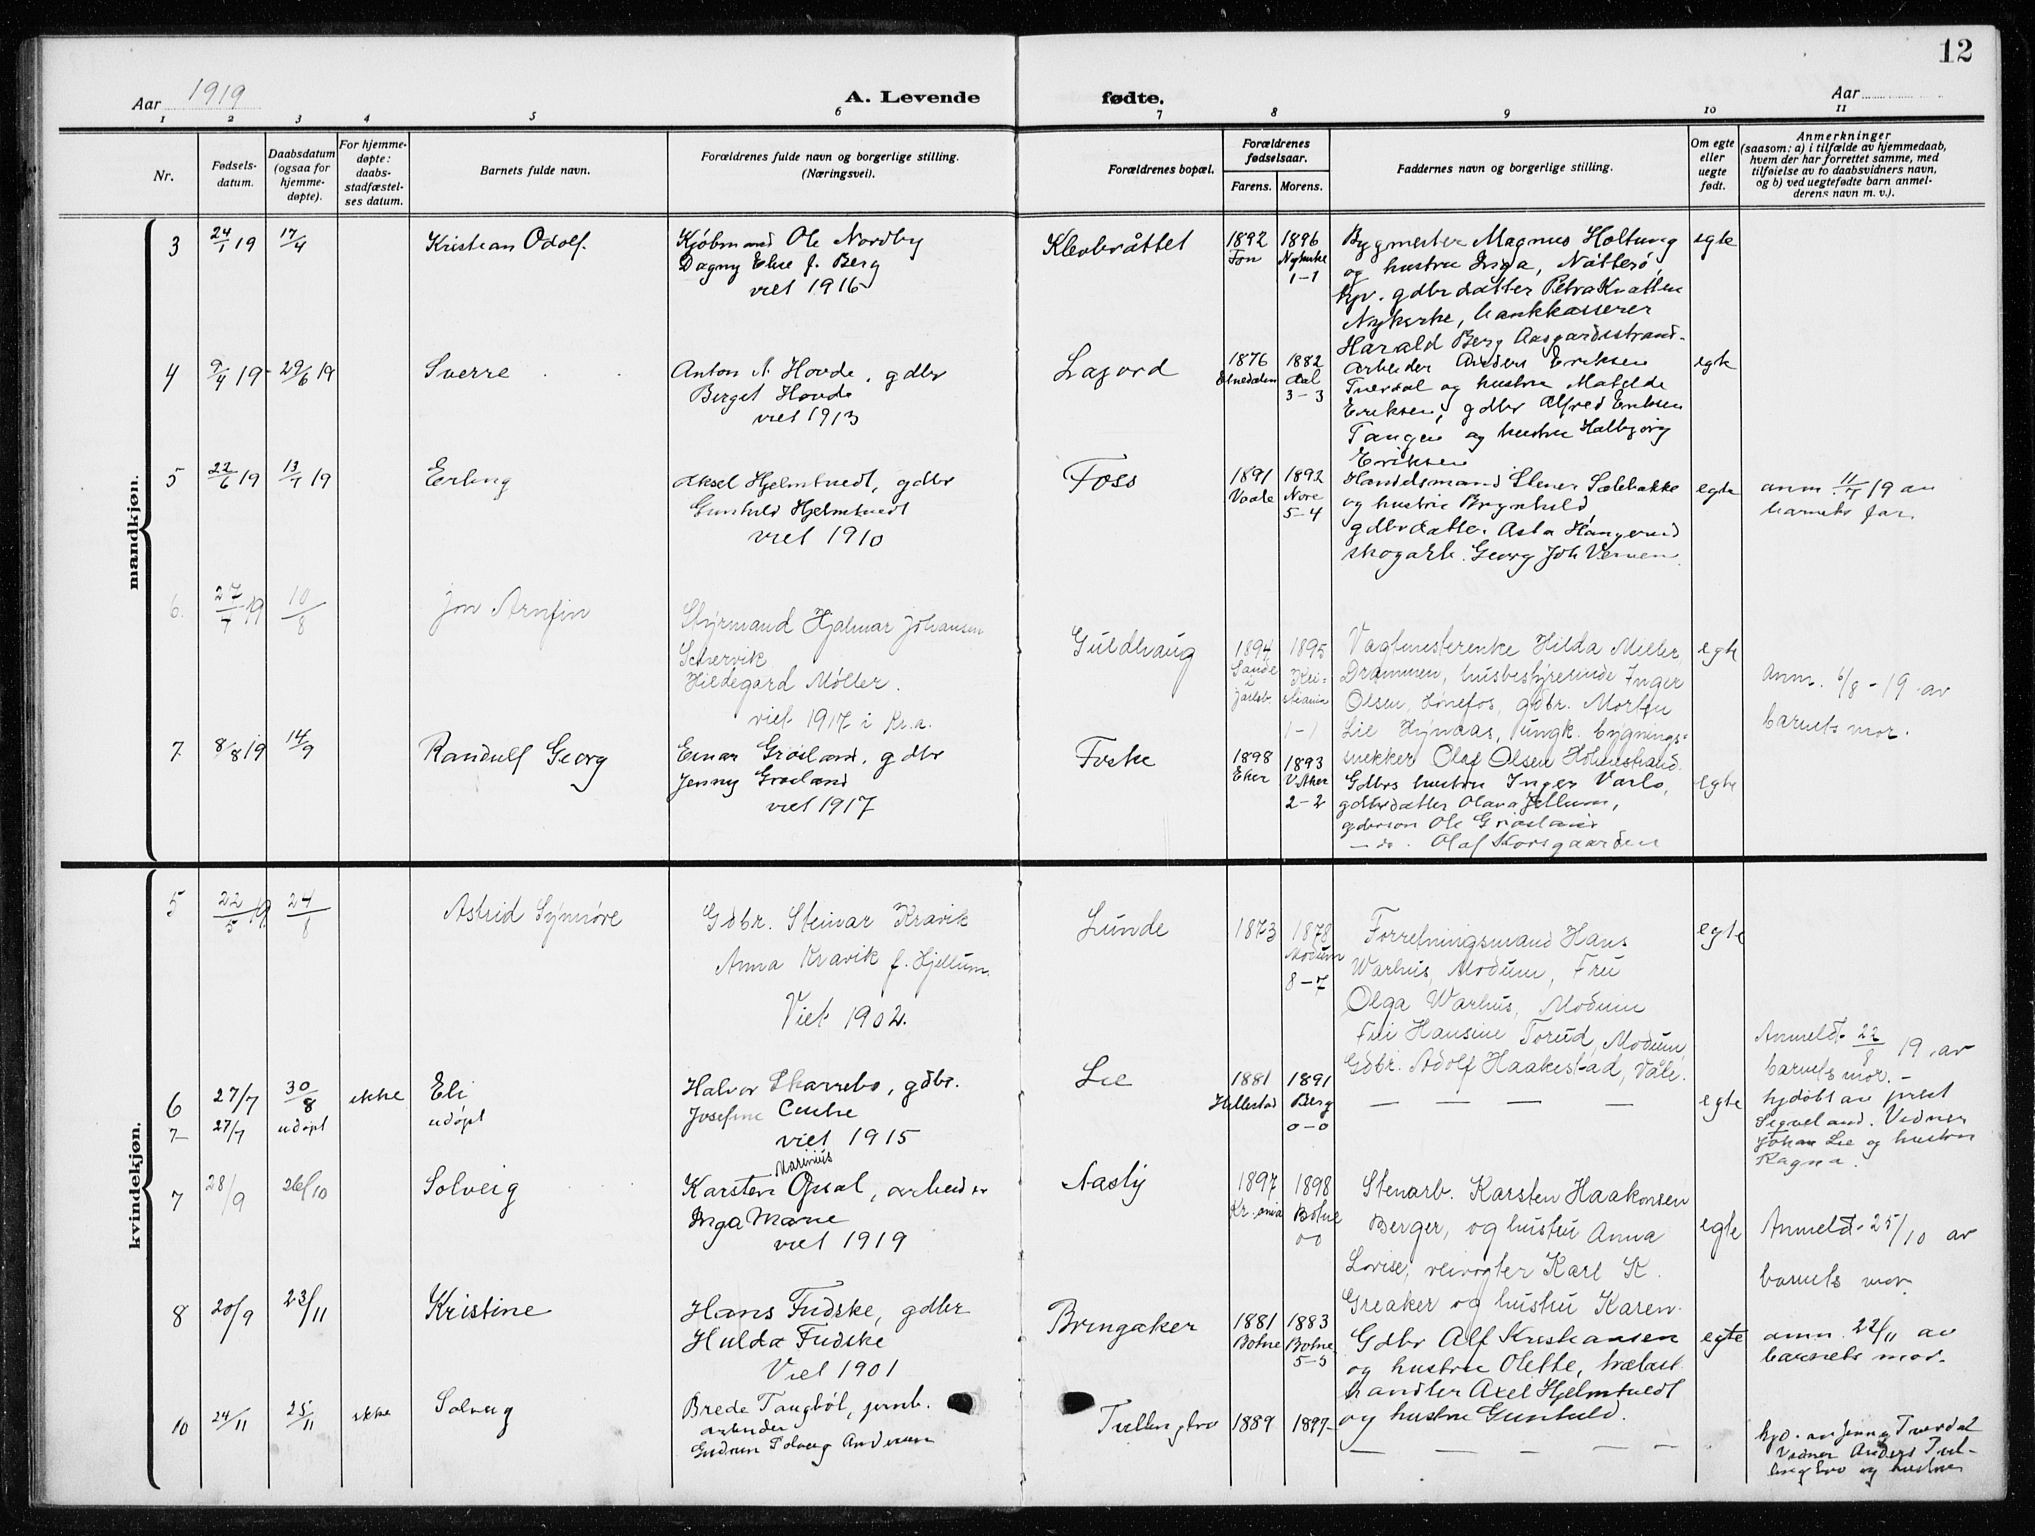 12
Aar 1919
A. Levende fødte.
Aar
1 2 3 4 5 6 7 8 9 10 11
Nr.
Fødsels-
datum.
Daabsdatum
(ogsaa for
hjemme-
døpte).
For hjemme-
døpte:
daabs-
stadfæstel-
ses datum.
Barnets fulde navn.
Forældrenes fulde navn og borgerlige stilling.
(Næringsvei).
Forældrenes bopæl.
Forældrenes
fødselsaar.
Farens. Morens.
Faddernes navn og borgerlige stilling.
Om egte
eller
uegte
født.
Anmerkninger
(saasom: a) i tilfælde av hjemmedaab,
hvem der har forrettet samme, med
tilføielse av to daabsvidners navn,
og b) ved uegtefødte barn anmel-
derens navn m. v.).
mandkjøn.
3
24/1 19
17/4
Kristian Odolf.
Kjøbmand Ole Nordby
Dagny Elise f. Berg
viet 1916
Klevbråttet
1892
Fon
1896
Nykirke
1-1
Bygmester Magnus Holtung
og hustru Inga, Nøtterö,
gdbrdatter Petra
Nykirke, bankkasserer
Harald Berg Aasgaardsstrand.
egte
4
9/4 19
29/6 19
Sverre
Anton N. Hovde, gdbr
Berget Hovde
viet 1913
Lagord
1876
Etnedalen
1882
Aal
3-3
Arbeider Anders Eriksen
Tverdal og hustru Matelde
Eriksen, gdbr Alfred Eriksen
Tangen og hustru Halbjørg
Eriksen
egte
5
22/6 19
13/7 19
Erling
Aksel Hjelmtvedt, gdbr
Gunhild Hjelmtvedt
viet 1910
Foss
1891
Vaale
1892
Nore
5-4
Handelsmand Stener Sælebakke
og hustru Brynhild
gdbrdatter Asta
skogarb. Georg Joh
egte
anm. 11/7 19 av
barnets far.
6.
27/7 19
10/8
Jon Arnfin
Styrmand Hjalmar Johansen
Schervik
Hildegard Møller.
viet 1917 i Kr.a.
Guldhaug
1894
Sande
i
Jarlsb.
1895
Kri-
stiania
1-1
Vagtmesterenke Hilda Miller,
Drammen, husbestyrerinde Inger
Olsen, Hønefos, gdbr. Morten
Lie Hynaas, ungk. bygnings-
snekker Olaf Olsen Holmestrand.
egte
Anm. 6/8 - 19 av
barnets mor.
7
8/8 19
14/9
Randulf Georg
Einar Grøsland, gdbr
Jenny Grøsland
viet 1917
Foske
1898
Eker
1893
V. Aker
2-2
Gdbrs hustru Inger Varlo,
gdbrdatter Olava Jellum,
gdbrson Ole Grøsland
— do. Olaf Korsgaarden
egte
kvindekjøn.
5
22/5 19
24/8
Astrid Synnöve
Gdbr. Steinar Kravik
Anna Kravik f. Hjellum.
Viet 1902.
Lunde
1873
1878
Modum
8-7
Forretningsmand Hans
Warhus, Modum, Fru
Olga Warhus, Modum
Fru Hansine Torud, Modum,
Gdbr. Adolf Haakestad, Våle.
egte
Anmeldt 22/8 19. av
barnets mor. -
6
27/7
30/8
ikke
Eli
Halvor Skarrebo, gdbr.
Josefine
viet 1915
Lie
1881
Hillestad
1891
Berg
0-0
— — — —
egte
hjdöbt av prest
Sigveland. Vidner
Johan Lie og hustru
Ragna.
7
27/7
udøpt
udøpt
7
28/9
26/10
Solveig
Marinius
Karsten Opsal, arbeider
Inga Marie
viet 1919
Nasby
1897
Kr.ania
1898
Botne
00
Stenarb. Karsten Haakonsen
Berger, og hustru Anna
Lovise, veivogter Karl K.
Greaker og hustru Karen.
egte
Anmeldt 25/10 av
barnets mor.
8
20/9
23/11
Kristine
Hans Fudske, gdbr
Hulda Fudske
Viet 1901
Bringaker
1881
Botne
1883
Botne
5-5
Gdbr Alf Kristiansen
og hustru Olette, trælast
handler Axel Hjelmtvedt
og hustru Gunhild.
egte
anm. 22/11 av
barnets mor.
10
24/11
25/11
ikke
Solveig
Brede Tangböl, jernb.
arbeider
Gudrun Solveig Andersen
1889
1897
— — — —
hjd. av Jenny Tverdal
Vidner Anders
og hustru